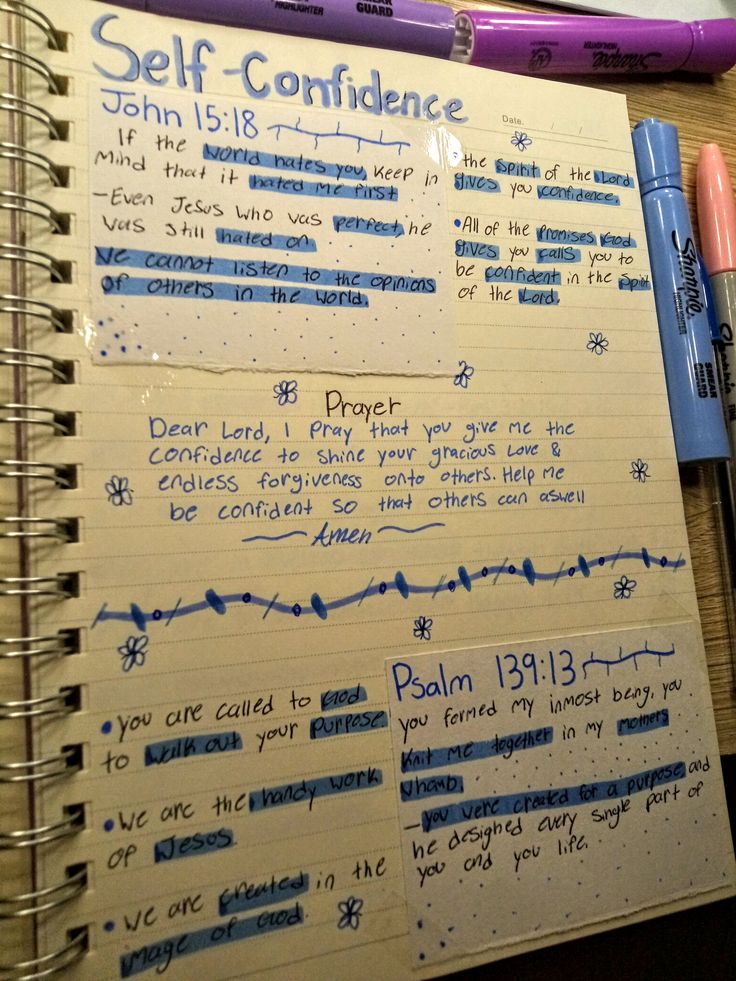 HIGHLIGHTER
SMEAR
GUARD
Sharpie
HIGHLIGHTER
Self-Confidence
Date. / /
John 15:18
If the world hates you, keep in
mind that it hated me first
-Even Jesus who was perfect, he
was still hated on
we cannot listen to the opinions
of others in the world.
• the Spirit of the Lord
gives you confidence.
• All of the promises God
gives you calls you to
be confident in the Spirit
of the Lord.
Prayer
Dear Lord, I pray that you give me the
confidence to shine your gracious love &
endless forgiveness onto others. Help me
be confident so that others can aswell
Amen
• you are called to God
to walk out your purpose
• we are the handy work
of Jesus.
• we are created in the
image of God.
Psalm 139:13
you formed my inmost being, you
knit me together in my mothers
whomb.
- you were created for a purpose and
he designed every single part of
you and you life.
Sharpie
HIGHLIGHTER
SMEAR
GUARD